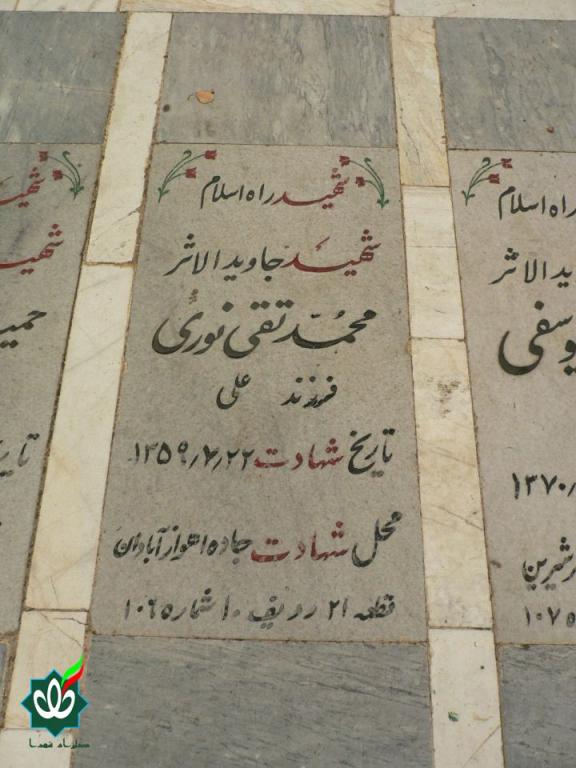 شهید راه اسلام
شهید جاوید الاثر
محمد تقی نوری
فرزند علی
تاریخ شهادت ۱۳۵۹/۷/۲۲
محل شهادت جاده اهواز آبادان
قطعه ۲۱ ردیف ۱۰ شماره ۱۰۶
راه اسلام
ید الاثر
وسفی
۱۳۷۰/
شیرین
۱۰۷
شهید
شهید
حمید
تاریخ